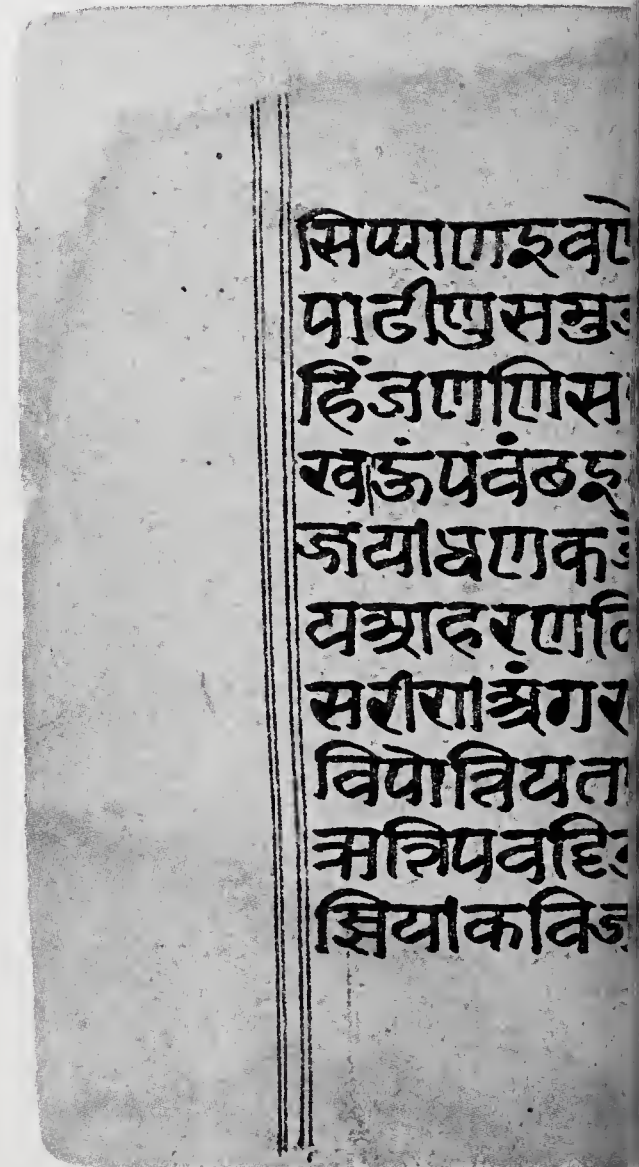 सिप्पाणइवणे
पाढीणुसमु
हिंजणणिस
खऊंपवंठइ
जयाधणक
यआहरणवि
सरीराअंगर
विपोत्तियत
अत्तिपवहि
झियाकवि